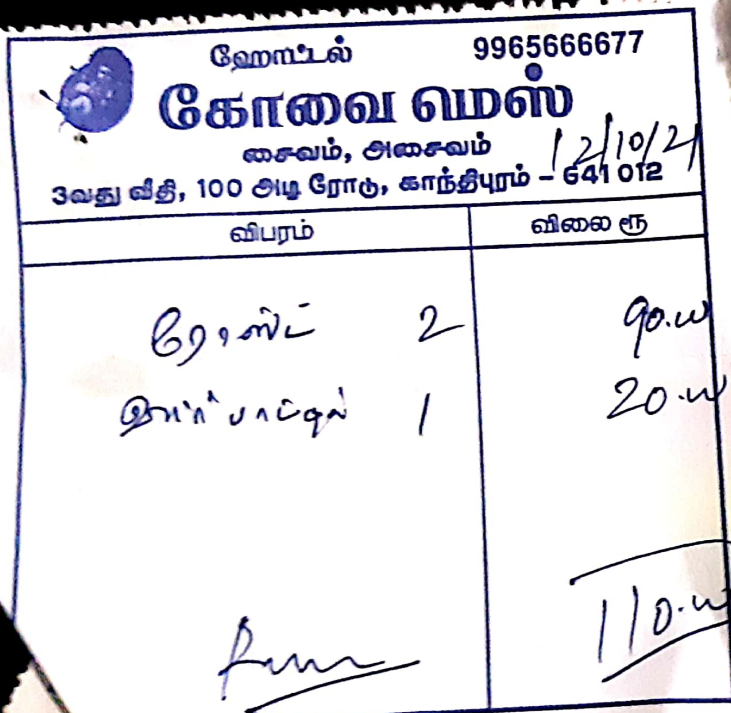 ஹோட்டல் 9965666677
கோவை மெஸ்
சைவம், அசைவம் 12/10/21
3வது வீதி, 100 அடி ரோடு, காந்திபுரம் - 641 012
விபரம் விலை ரூ
ரோஸ்ட் 2 90.00
வாட்டர் பாட்டில் 1 20.00
110.00